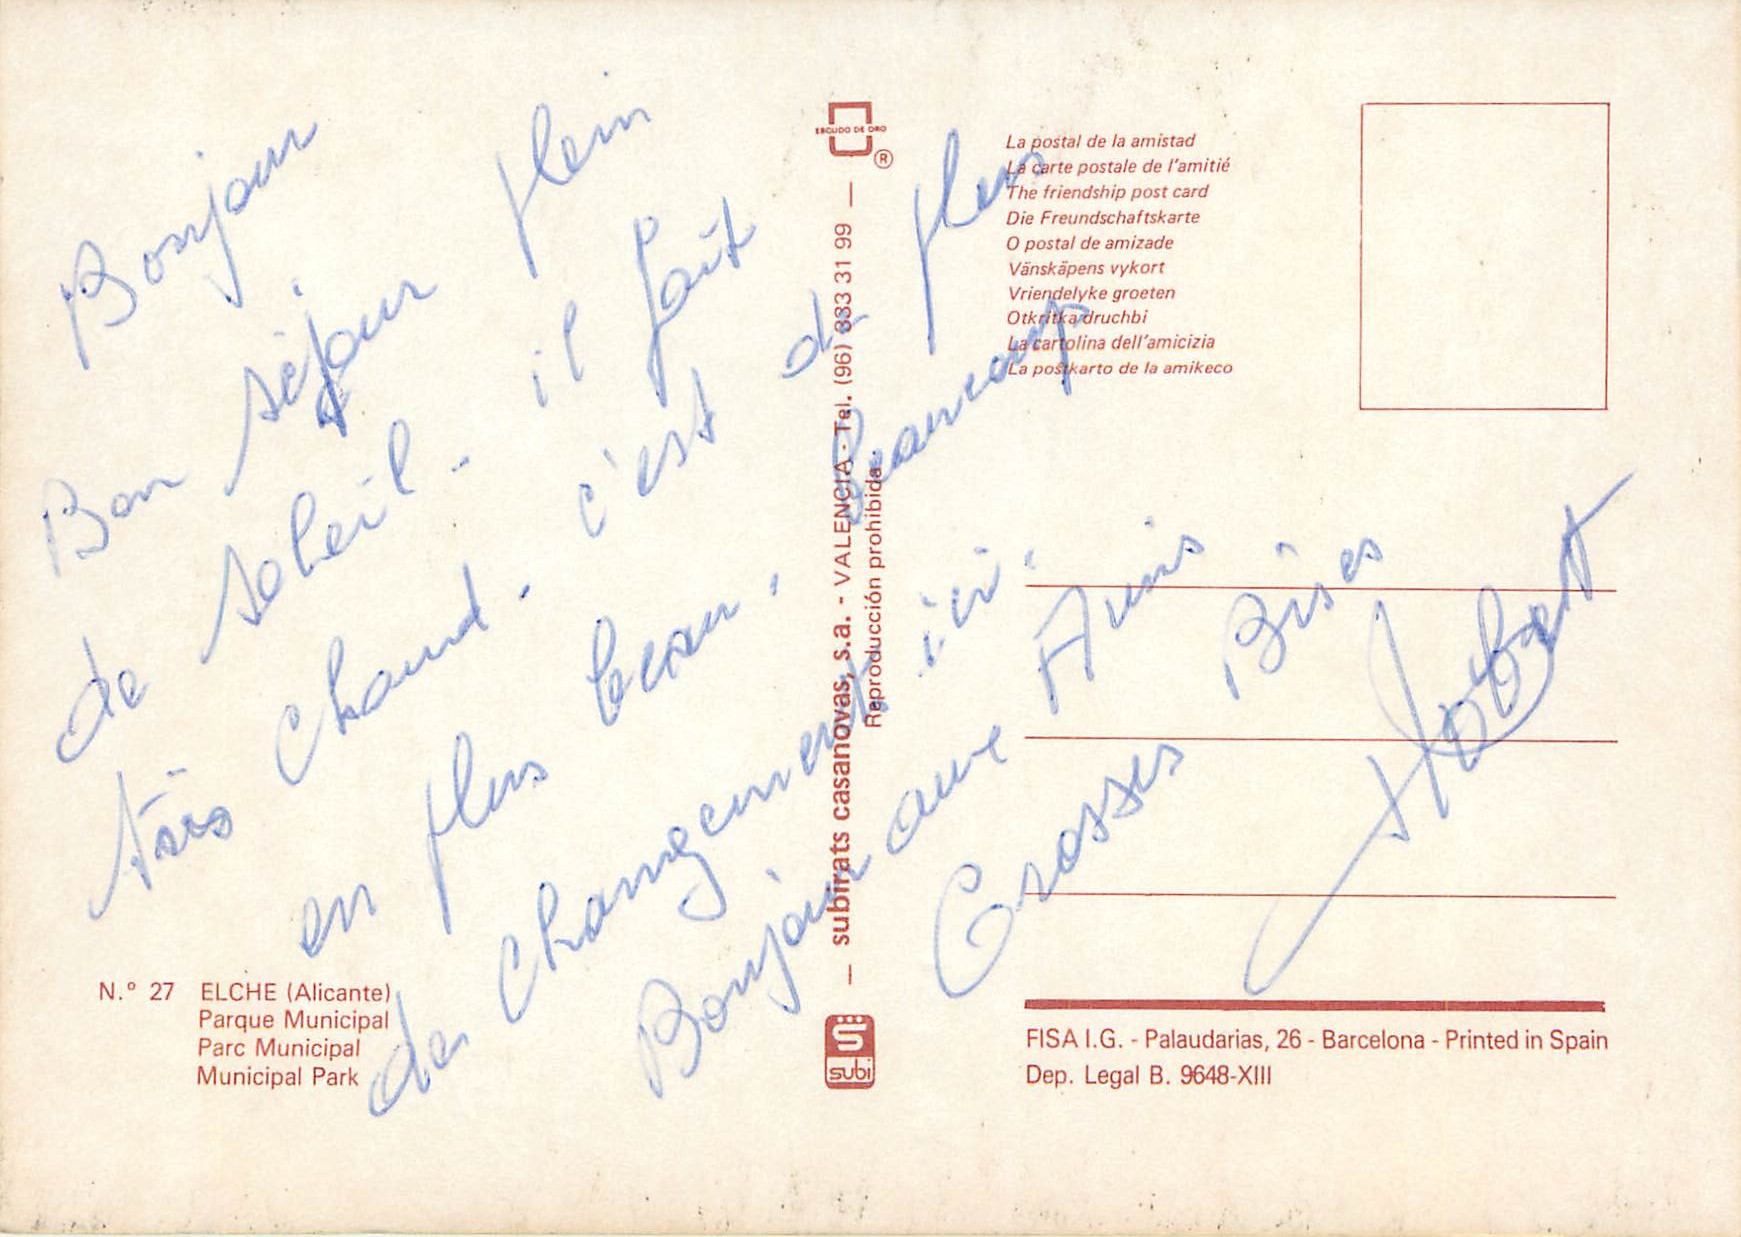 Bonjour
Bon séjour plein
de soleil - il fait
très chaud. c'est de plus
en plus beau. Beaucoup
de changement ici.
Bonjour aux Amis
Grosses Bises
ESCUDO DE ORO
®
La postal de la amistad
La carte postale de l'amitié
The friendship post card
Die Freundschaftskarte
O postal de amizade
Vänskäpens vykort
Vriendelyke groeten
Otkritka druchbi
La cartolina dell'amicizia
La postkarto de la amikeco
— subirats casanovas, s.a. - VALENCIA - Tel. (96) 333 31 99 —
Reproducción prohibida
N.º 27 ELCHE (Alicante)
Parque Municipal
Parc Municipal
Municipal Park
subi
FISA I.G. - Palaudarias, 26 - Barcelona - Printed in Spain
Dep. Legal B. 9648-XIII